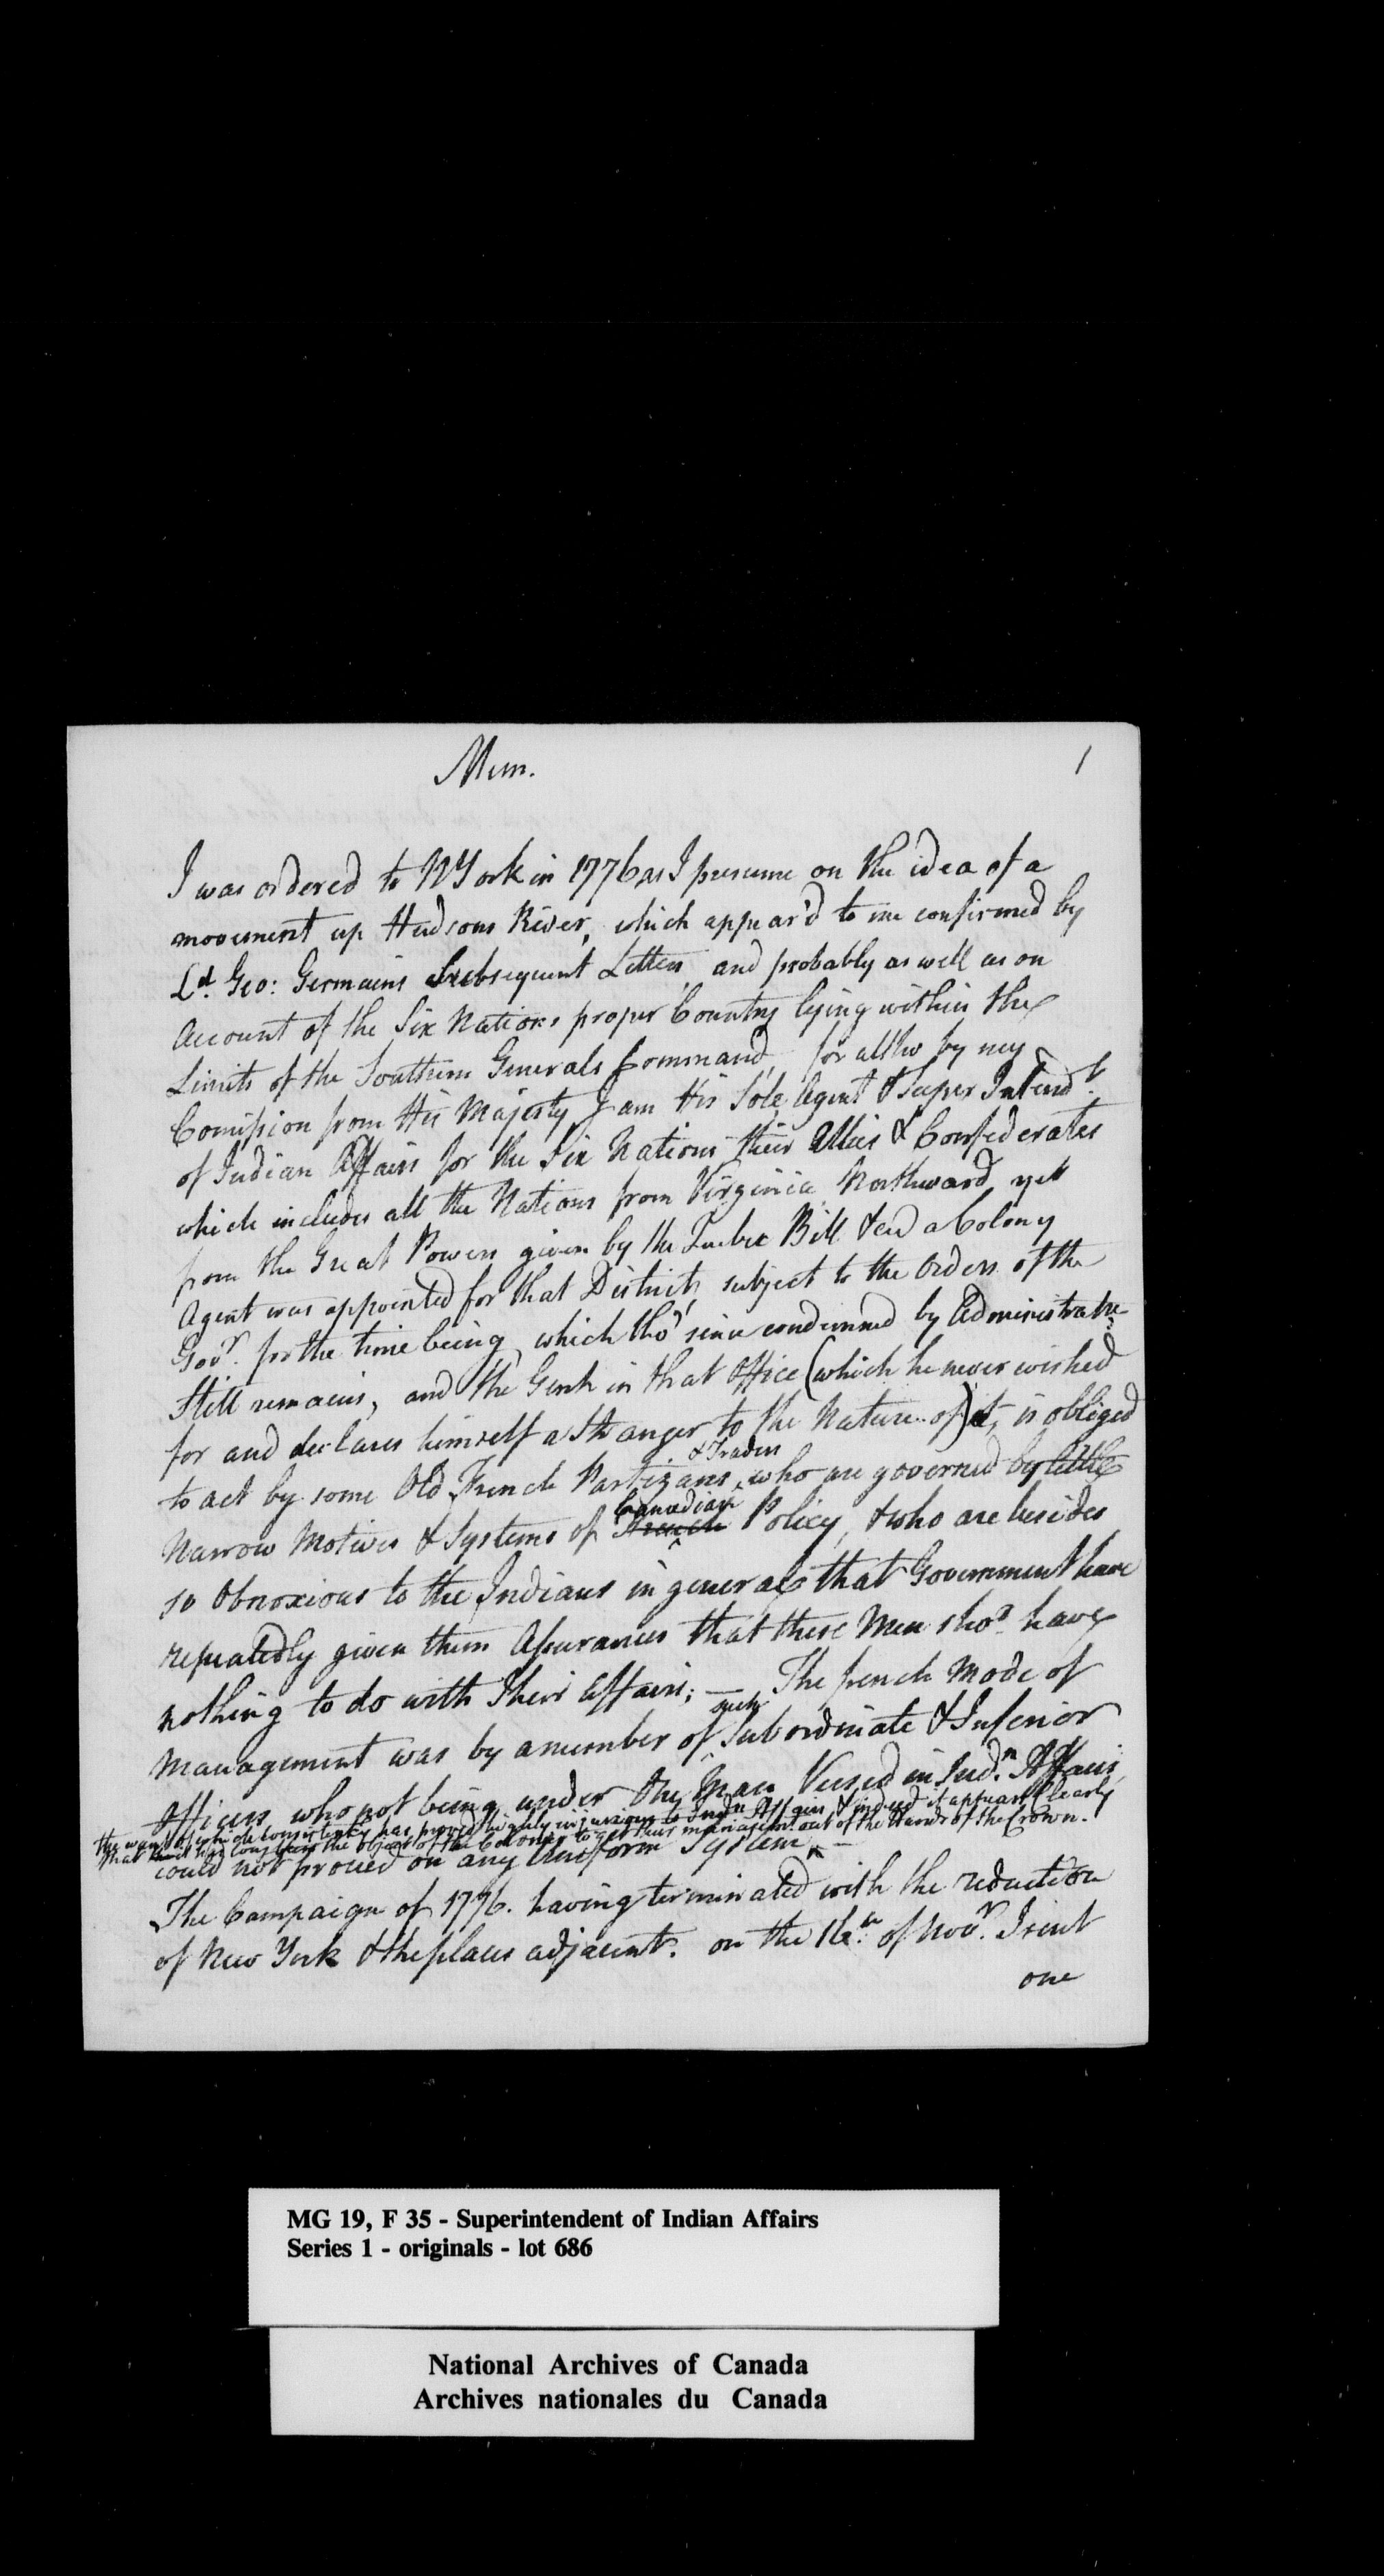 Mem.
1
I was ordered to NYork in 1776 as I presume on the idea of a
movement up Hudsons River, which appear'd to me confirmed by
Ld. Geo: Germains Subsequent Letters, and probably as well as on
Account of the Six Nations proper Country lying within the
Limits of the Southern Generals Command, for altho by my
Comission from His Majesty I am His Sole Agent & Super Intendt.
of Indian Affairs for the Six Nations their Allies & Confederates
which includes all the Nations from Virginia Northward, yet
from the Great Powers given by the Quebec Bill &ca a Colony
Agent was appointed for that District, subject to the Orders of the
Govr. for the time being, which tho' since condemned by Administratn.
Still remains, and the Gent in that Office (which he never wished
for and declares himself a Stranger to the Nature of) is obliged
to act by some Old French Partizans & Traders who are governed by little
Narrow Motives & Systems of French Canadian Policy, & who are besides
so Obnoxious to the Indians in general that Government have
repeatedly given them Assurances that these Men shod. have
nothing to do with Their Affairs; — The french Mode of
Management was by a number of such Subordinate & Inferior
Officers who not being under any Man Versed in Indn. Affairs,
could not proceed on any Uniform System, —
the want of which consistently has proved highly injurious to Indn. Affairs, & indeed it appears clearly
that it has long been the object of the Colonies to get their managemt. out of the Hands of the Crown.
The Campaign of 1776. having terminated with the reduction
of New York & the places adjacent. on the 16th. of Novr. I sent
one
MG 19, F 35 - Superintendent of Indian Affairs
Series 1 - originals - lot 686
National Archives of Canada
Archives nationales du Canada